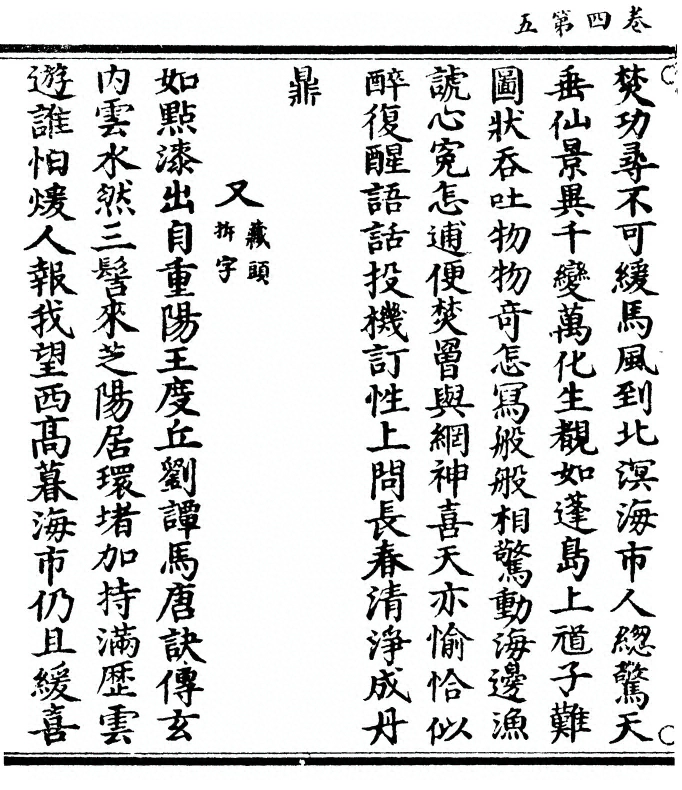 卷四第五
焚功尋不可緩馬風到北溟海市人緫驚天
垂仙景異千變萬化生覩如蓬島上𨕥子難
圖狀吞吐物物奇怎冩般般相驚動海邊漁
諕心寃怎逋便焚罾與網神喜天亦愉恰似
醉復醒語話投機訂性上問長春清淨成丹
鼎
又藏頭拆字
如點漆出自重陽王度丘劉譚馬唐訣傳玄
内雲水然三髻來芝陽居環堵加持滿歷雲
遊誰怕煖人報我望西髙暮海市仍且緩喜